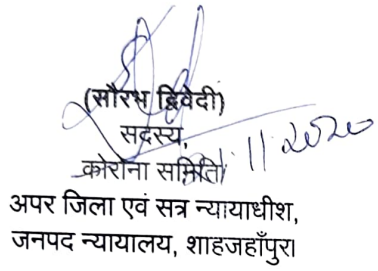 (सौरभ द्विवेदी)
सदस्य,
कोरोना समिति।
11.2020
अपर जिला एवं सत्र न्यायाधीश,
जनपद न्यायालय, शाहजहाँपुर।